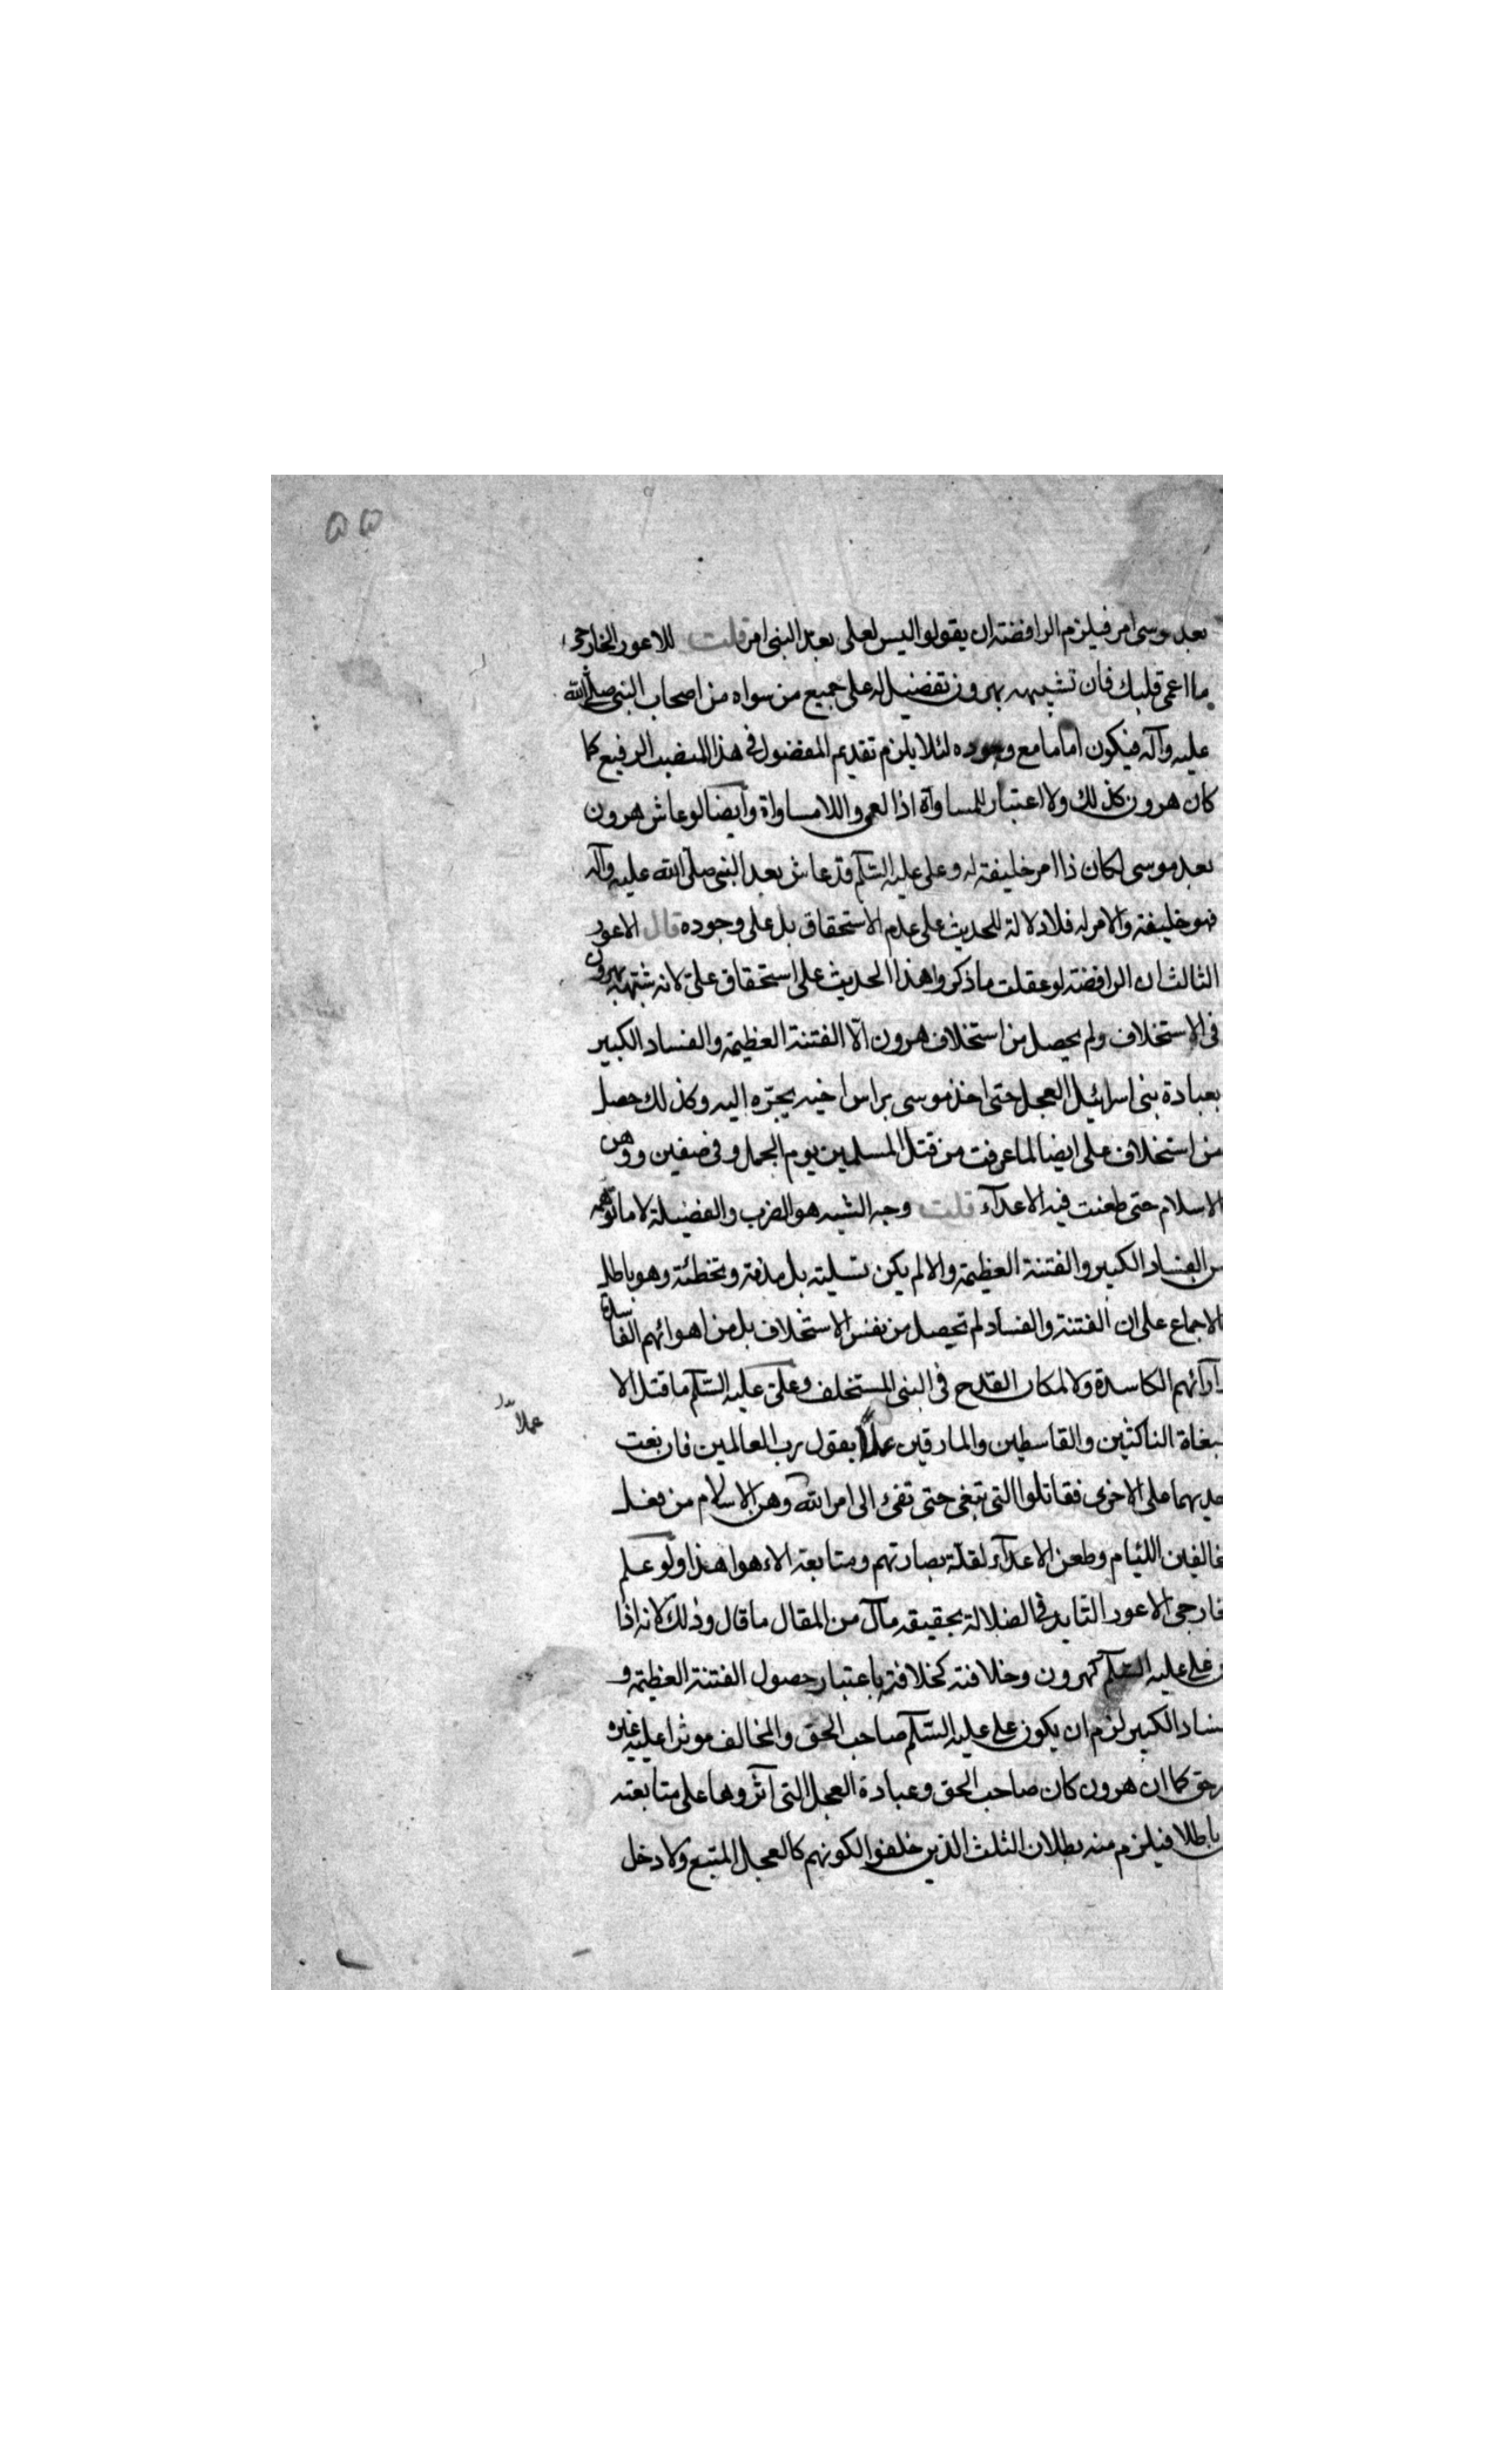 ٥٥
بعد موسى امر فيلزم الرافضة ان يقولوا ليس لعلى بعد النبى امر قلت للاعور الخارجى
ما اعمى قلبك فان تشبيهه بهرون تفضيل له على جميع من سواه من اصحاب النبى صلى الله
عليه وآله فيكون اماما مع وجوده لئلا يلزم تقديم المفضول فى هذا المنصب الرفيع كما
كان هرون كذلك ولا اعتبار للمساواة اذا لعمى واللامساواة وايضا لو عاش هرون
بعد موسى لكان ذا امر خليفة له وعلى عليه السلم قد عاش بعد النبى صلى الله عليه وآله
فهو خليفته والامر له فلا دلالة للحديث على عدم الاستحقاق بل على وجوده قال الاعور
الثالث ان الرافضة لو عقلت ما ذكروا هذا الحديث على استحقاق على لانه شبهه بهرون
فى الاستخلاف ولم يحصل من استخلاف هرون الا الفتنة العظيمة والفساد الكبير
بعبادة بنى اسرائيل العجل حتى اخذ موسى براس اخيه يجره اليه وكذلك حصل
من استخلاف على ايضا لما عرفت من قتل المسلمين يوم الجمل وفى صفين ووهن
الاسلام حتى طعنت فيه الاعدآء قلت وجه الشبه هو القرب والفضيلة لا ما توهمه
من الفساد الكبير والفتنة العظيمة والا لم يكن تسليته بل مذمة وتخطئة وهو باطل
الاجماع على ان الفتنة والفساد لم تحصل من نفس الاستخلاف بل من اهوائهم الفاسدة
آرائهم الكاسدة ولا لمكان القدح فى النبى المستخلف وعلى عليه السلم ما قتل الا
بغاة الناكثين والقاسطين والمارقين عملا بقول رب العالمين فان بغت
عملا
حديهما على الاخرى فقاتلوا التى تبغى حتى تفئ الى امر الله وهن الاسلام من فعل
خالفين اللئيام وطعن الاعدآء لقلة بصارتهم ومتابعة الاهوا هذا ولو علم
خارجى الاعور القايد فى الضلالة بحقيقه مآل من المقال ما قال وذلك لانه اذا
ن على عليه السلم كهرون وخلافته كخلافته باعتبار حصول الفتنة العظيمة و
فساد الكبير لزم ان يكون على عليه السلم صاحب الحق والمخالف موثرا عليه غيره
حق كما ان هرون كان صاحب الحق وعبادة العجل التى آثروها على متابعته
باطلا فيلزم منه بطلان الثلث الذين خلفوا لكونهم كالعجل المتبع ولا دخل